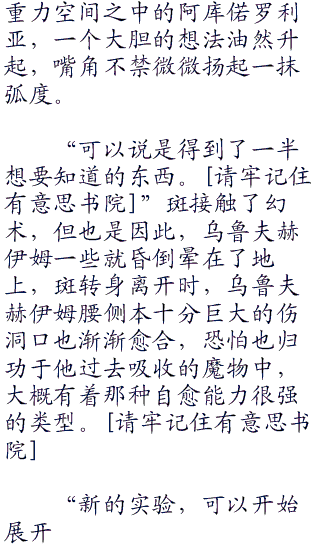 重力空间之中的阿库偌罗利
亚，一个大胆的想法油然升
起，嘴角不禁微微扬起一抹
弧度。
“可以说是得到了一半
想要知道的东西。[请牢记住
有意思书院]”斑接触了幻
术，但也是因此，乌鲁夫赫
伊姆一些就昏倒晕在了地
上，斑转身离开时，乌鲁夫
赫伊姆腰侧本十分巨大的伤
洞口也渐渐愈合，恐怕也归
功于他过去吸收的魔物中，
大概有着那种自愈能力很强
的类型。[请牢记住有意思书
院]
“新的实验，可以开始
展开